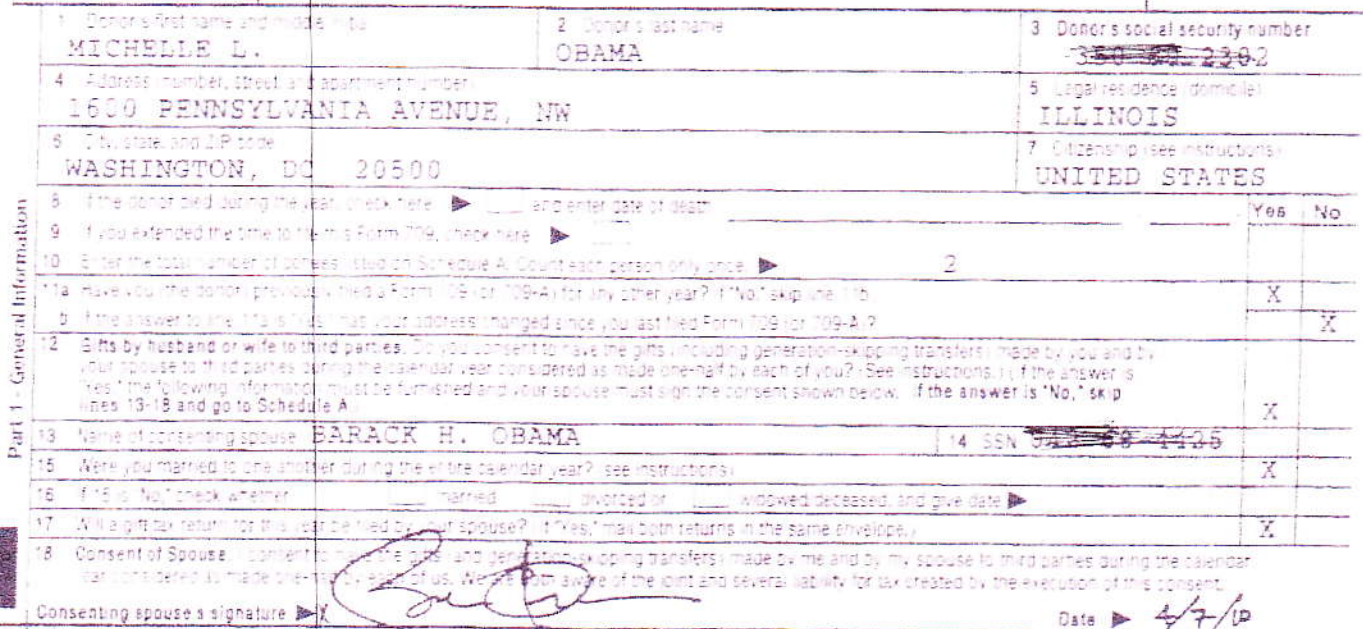 1 Donor's first name and middle initial
MICHELLE L.
2 Donor's last name
OBAMA
3 Donor's social security number
4 Address (number, street, and apartment number)
1600 PENNSYLVANIA AVENUE, NW
5 Legal residence (domicile)
ILLINOIS
6 City, state, and ZIP code
WASHINGTON, DC 20500
7 Citizenship (see instructions)
UNITED STATES
Part 1 - General Information
Yes No
8 If the donor died during the year, check here ▶ and enter date of death
9 If you extended the time to file this Form 709, check here ▶
10 Enter the total number of donees listed on Schedule A. Count each person only once ▶ 2
11a Have you (the donor) previously filed a Form 709 (or 709-A) for any other year? If "No," skip line 11b X
b If the answer to line 11a is "Yes," has your address changed since you last filed Form 709 (or 709-A)? X
12 Gifts by husband or wife to third parties. Do you consent to have the gifts (including generation-skipping transfers) made by you and by
your spouse to third parties during the calendar year considered as made one-half by each of you? (See instructions.) (If the answer is
"Yes," the following information must be furnished and your spouse must sign the consent shown below. If the answer is "No," skip
lines 13-18 and go to Schedule A.) X
13 Name of consenting spouse BARACK H. OBAMA 14 SSN
15 Were you married to one another during the entire calendar year? (see instructions) X
16 If 15 is "No," check whether married divorced or widowed/deceased, and give date ▶
17 Will a gift tax return for this year be filed by your spouse? (If "Yes," mail both returns in the same envelope.) X
18 Consent of Spouse. I consent to have the gifts (and generation-skipping transfers) made by me and by my spouse to third parties during the calendar
year considered as made one-half by each of us. We are both aware of the joint and several liability for tax created by the execution of this consent.
Consenting spouse's signature ▶ X Date ▶ 4/7/10